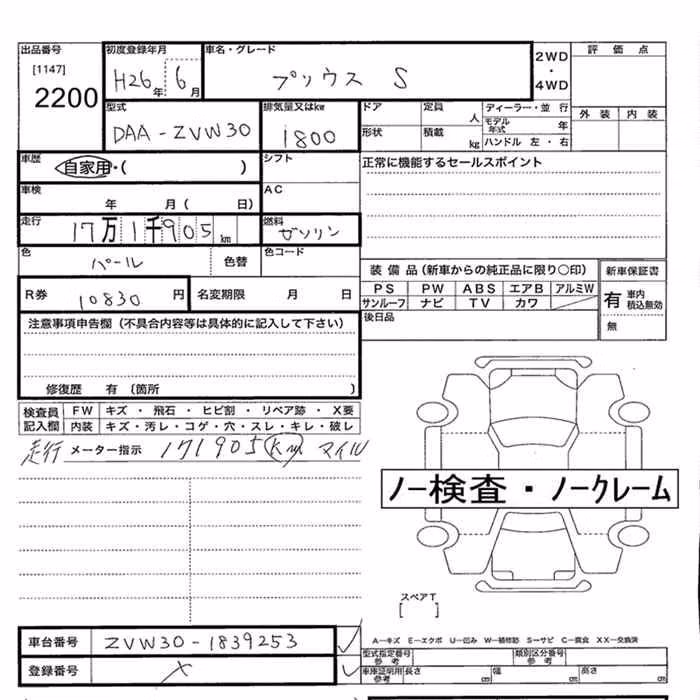 出品番号 初度登録年月 車名・グレード 2WD・4WD 評価点
[1147] 2200 H26年 6月 プリウス S
型式 排気量又はkw ドア 定員 人 ディーラー・並行 外装 内装
DAA-ZVW30 1800 形状 積載 kg モデル年式 年 ハンドル 左・右
車歴 自家用・( ) シフト 正常に機能するセールスポイント
車検 年 月( 日) AC
走行 17万1千905km 燃料 ガソリン
色 パール 色替 色コード 装備品(新車からの純正品に限り○印) 新車保証書
R券 10830円 名変期限 月 日 PS PW ABS エアB アルミW 有 車内積込無効
サンルーフ ナビ TV カワ
注意事項申告欄(不具合内容等は具体的に記入して下さい) 後日品 無
修復歴 有 (箇所 )
検査員記入欄 FW キズ・飛石・ヒビ割・リペア跡・X要
内装 キズ・汚レ・コゲ・穴・スレ・キレ・破レ
走行 メーター指示 171905 km マイル
ノー検査・ノークレーム
スペアT
[ ]
車台番号 ZVW30-1839253 ✓ A−キズ E−エクボ U−凹み W−補修跡 S−サビ C−腐食 XX−交換済
型式指定番号 参考 類別区分番号 参考
登録番号 × ✓ 車庫証明用参考 長さ cm 幅 cm 高さ cm